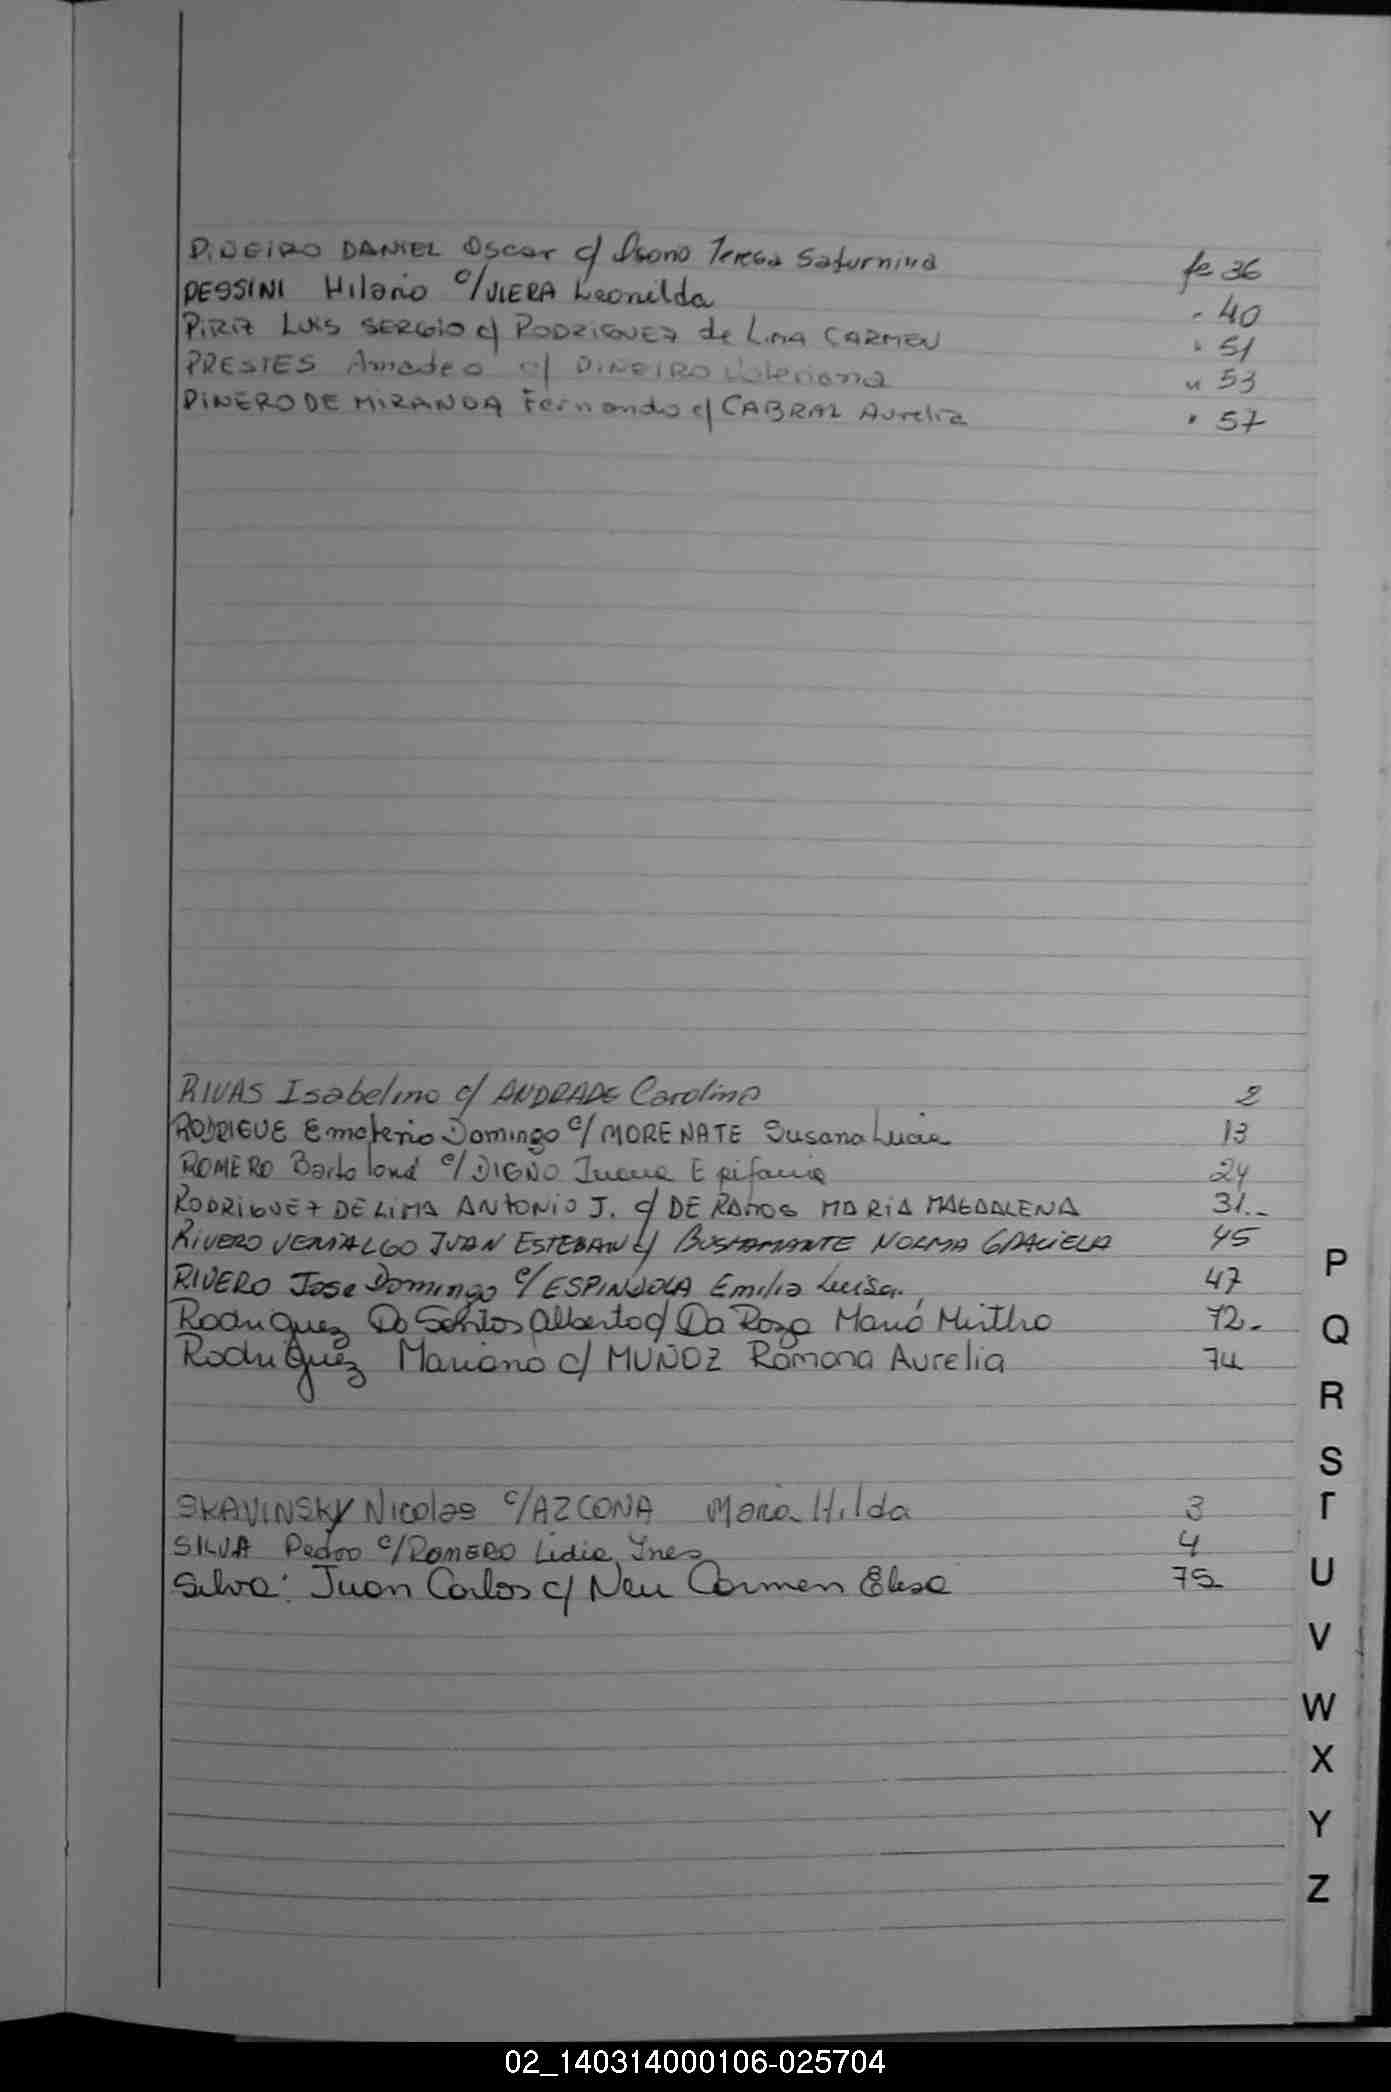 PIÑEIRO DANIEL Oscar c/ Teresa Saturnina fe 36
PESSINI Hilario c/ VIERA Leonilda " 40
PIRIZ LUIS SERGIO c/ RODRIGUEZ de LIMA CARMEN " 51
PRESTES Amadeo c/ PIÑEIRO Valeriana " 53
PIÑERO DE MIRANDA Fernando c/ CABRAL Aurelia " 57
RIVAS Isabelino c/ ANDRADE Carolina 2
RODRIGUE Emeterio Domingo c/ MORENATE Susana Lucia 13
ROMERO Bartolomé c/ Juana Epifania 24
RODRIGUEZ DE LIMA ANTONIO J. c/ DE RAMOS MARIA MAGDALENA 31.-
RIVERO VERNALGO JUAN ESTEBAN c/ BUSTAMANTE NORMA GRACIELA 45
RIVERO Jose Domingo c/ ESPINDOLA Emilia Luisa. 47
Rodriguez Do Santos Alberto c/ Da Rosa María Mirtha 72.-
Rodriguez Mariano c/ MUÑOZ Ramona Aurelia 74
SKAVINSKY Nicolas c/ AZCONA Maria Hilda 3
SILVA Pedro c/ ROMERO Lidia Ines 4
Silva: Juan Carlos c/ Neu Carmen Elisa 75
P
Q
R
S
T
U
V
W
X
Y
Z
02_140314000106-025704